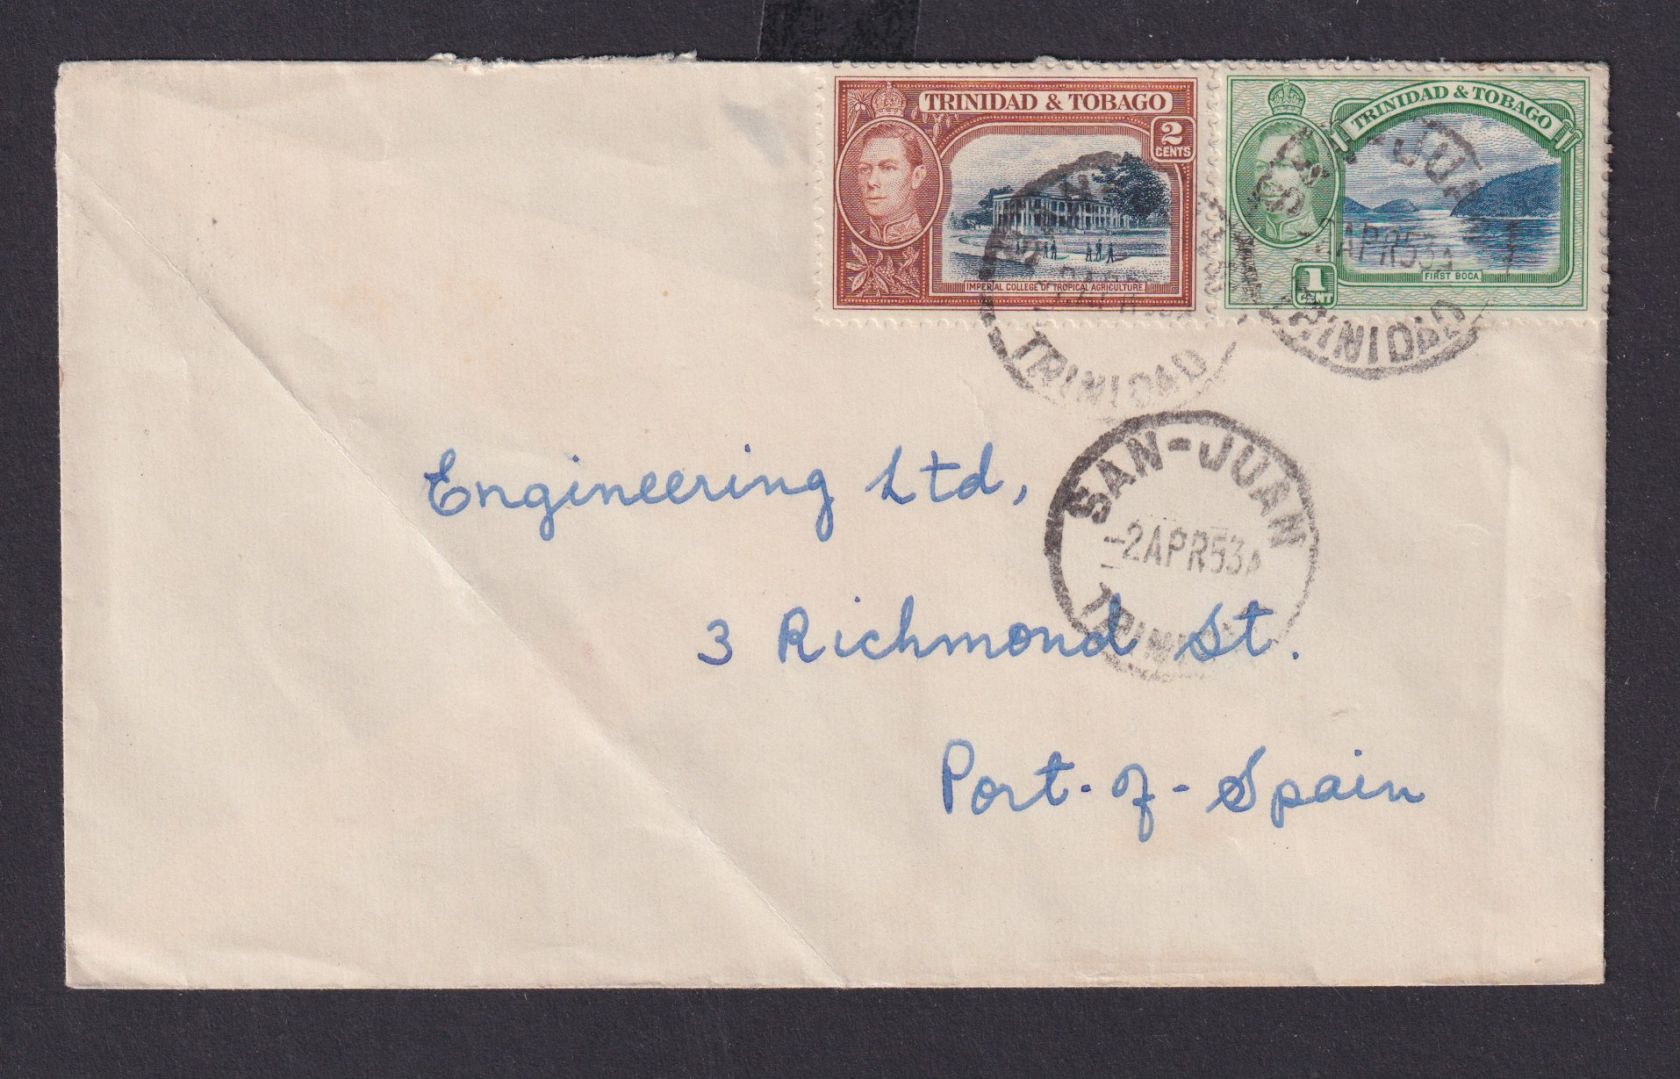 TRINIDAD & TOBAGO
2
CENTS
IMPERIAL COLLEGE OF TROPICAL AGRICULTURE
TRINIDAD & TOBAGO
1
CENT
FIRST BOCA
TRINIDAD
-JUA
2APR53A
TRINIDAD
SAN-JUAN
-2APR53A
TRINI
Engineering Ltd,
3 Richmond St.
Port-of-Spain